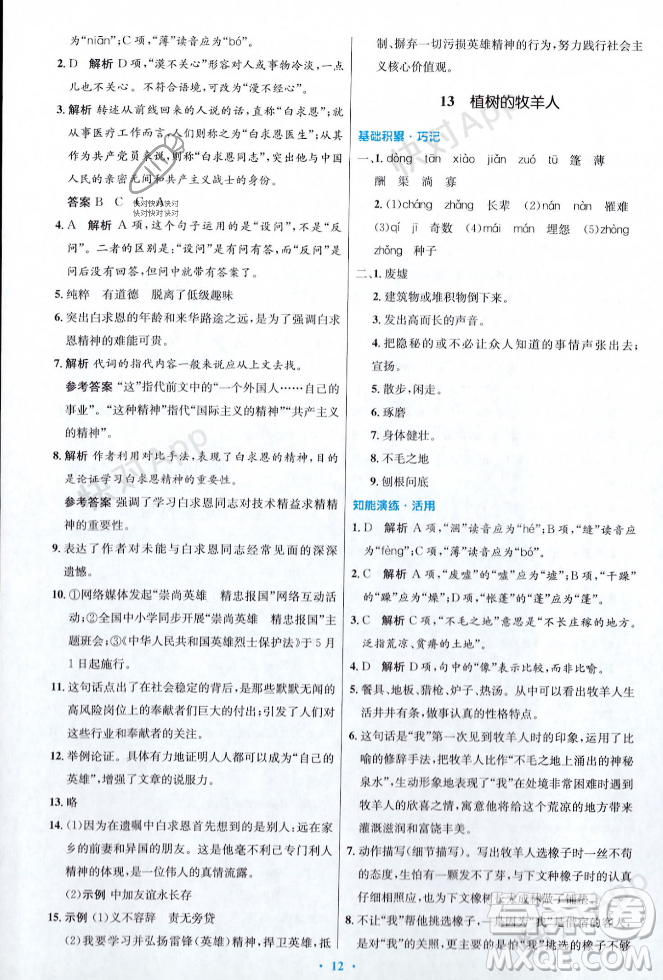 为“niān”；C项，“薄”读音应为“bó”。
2. D 解析 D项，“漠不关心”形容对人或事物冷淡，一点
儿也不关心。不符合语境，应改为“漫不经心”。
3. 解析 转述从前线回来的人的话，直称“白求恩”；从
事医疗工作者的感动，直称“白求恩医生”；从
作为共产党员来说，则称“白求恩同志”，以示中国
人民的亲密无间和共产主义战士的身份。
答案 B C C A
4. A 解析 A项，这个句子运用的是“设问”，不是“反
问”。二者的区别是：“设问”是有问有答，而“反问”是
后面没有回答，但反问中就带有答案了。
5. 纯粹 有道德 脱离了低级趣味
6. 突出白求恩的年龄和来华路途之远，是为了强调白求
恩精神的难能可贵。
7. 解析 代词的指代内容一般应从上文去找。
参考答案 “这”指代前文中的“一个外国人……自己的
事业”。“这种精神”指代“国际主义的精神”“共产主义
的精神”。
8. 解析 作者利用对比手法，表现了白求恩的精神，目
的是论证学习白求恩精神的重要性。
参考答案 强调了学习白求恩同志对技术精益求精精
神的重要性。
9. 表达了作者对未能与白求恩同志经常见面的深深
遗憾。
10. ①网络媒体发起“崇尚英雄 精忠报国”网络互动活
动；②全国中小学同步开展“崇尚英雄 精忠报国”主
题班会；③《中华人民共和国英雄烈士保护法》于5月
1日起施行。
11. 这句话点出了在社会稳定的背后，是那些默默无闻的
高风险岗位上的奉献者们巨大的付出；引发了人们对
这些行业和奉献者的关注。
12. 举例论证。具体有力地证明人人都可以成为“自己的
英雄”，增强了文章的说服力。
13. 略
14. (1)因为在遗嘱中白求恩首先想到的是别人：远在家
乡的前妻和异国的朋友。这体现了他毫不利己专门利人
精神的境界，是一位伟人的真情流露。
(2)示例 中加友谊永长存
15. 示例 (1)义不容辞 责无旁贷
(2)我要学习并弘扬雷锋(英雄)精神，捍卫英雄，抵
制、摒弃一切污损英雄精神的行为，努力践行社会主
义核心价值观。
13 植树的牧羊人
基础积累·巧记
一、1. dòng tān xiào jiǎn zuó tū 篷 薄
酬 渠 淌 寡
2. (1)cháng zhǎng 长辈 (2)nán nàn 罹难
(3)qí jī 奇数 (4)mái mán 埋怨 (5)zhòng
zhǒng 种子
二、1. 废墟
2. 建筑物或堆积物倒下来。
3. 发出高而长的声音。
4. 把隐秘的或不让众人知道的事情声张出去；
宣扬。
5. 散步，闲走。
6. 琢磨
7. 身体健壮。
8. 不毛之地
9. 刨根问底
知能演练·活用
1. D 解析 A项，“涸”读音应为“hé”；B项，“缝”读音应
为“fèng”；C项，“薄”读音应为“báo”。
2. C 解析 A项，“废嘘”的“嘘”应为“墟”；B项，“干躁”
的“躁”应为“燥”；D项，“帐蓬”的“蓬”应为“篷”。
3. C 解析 C项，“不毛之地”的意思是“不长庄稼的地方，
泛指荒凉、贫瘠的土地”。
4. D 解析 D项，句中的“像”表示举例，而不是比喻。
5. 餐具、地板、猎枪、炉子、热汤。突出表现出牧羊人生
活井井有条，做事认真的性格特点。
6. 这句话是“我”第一次见到牧羊人时的印象，运用了比
喻的修辞手法，把牧羊人比作“不毛之地上涌出的神秘
泉水”，生动形象地表现了“我”在处境非常困难时遇到
牧羊人的欣喜之情，寓意着牧羊人将给这个荒凉的地方带来
灌溉滋润和富饶丰美。
7. 动作描写(细节描写)。写出牧羊人选橡子时一丝不苟
的态度，表现了他做事认真、细致的性格特点，进一步
突出了他的高尚品质，也为下文橡树长大成林作铺垫。
8. 不可以。不让“我”帮他挑选橡子，一是因为“我”是借宿的客人，
对“我”的关照，更主要是担心“我”挑选的橡子不
12
快对App
快对快对快对